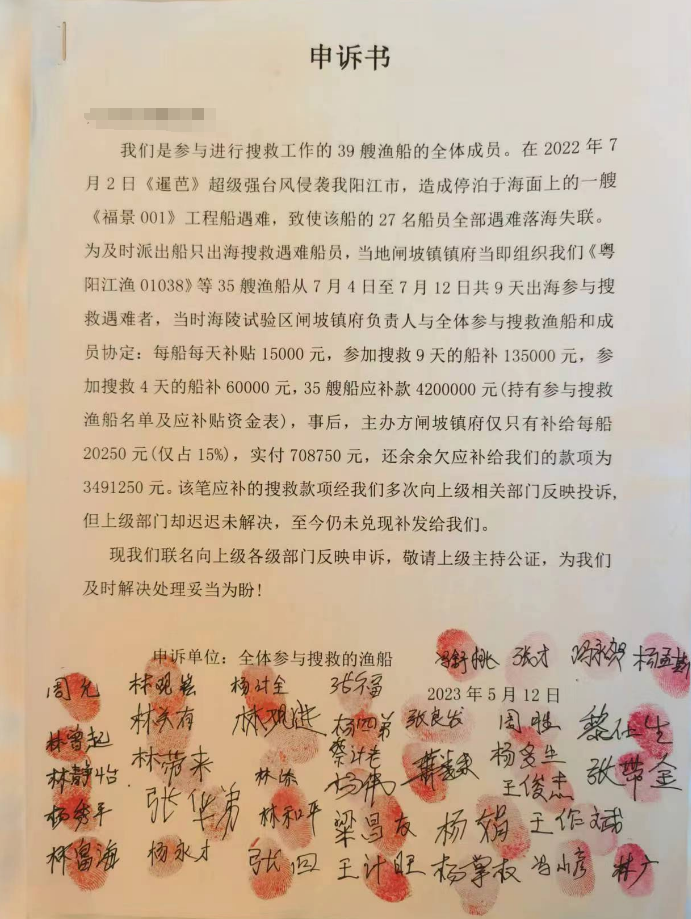 申诉书
我们是参与进行搜救工作的 39 艘渔船的全体成员。在 2022 年 7
月 2 日《暹芭》超级强台风侵袭我阳江市，造成停泊于海面上的一艘
《福景 001》工程船遇难，致使该船的 27 名船员全部遇难落海失联。
为及时派出船只出海搜救遇难船员，当地闸坡镇镇府当即组织我们《粤
阳江渔 01038》等 35 艘渔船从 7 月 4 日至 7 月 12 日共 9 天出海参与搜
救遇难者，当时海陵试验区闸坡镇府负责人与全体参与搜救渔船和成
员协定：每船每天补贴 15000 元，参加搜救 9 天的船补 135000 元，参
加搜救 4 天的船补 60000 元，35 艘船应补款 4200000 元(持有参与搜救
渔船名单及应补贴资金表)，事后，主办方闸坡镇府仅只有补给每船
20250 元(仅占 15%)，实付 708750 元，还余余欠应补给我们的款项为
3491250 元。该笔应补的搜救款项经我们多次向上级相关部门反映投诉,
但上级部门却迟迟未解决，至今仍未兑现补发给我们。
现我们联名向上级各级部门反映申诉，敬请上级主持公证，为我们
及时解决处理妥当为盼！
申诉单位：全体参与搜救的渔船 张才
周光 林观崧 杨计全 张福
2023 年 5 月 12 日
林关有 林观进 杨四弟 张良发 黎仕生
林静怡 林带来 杨伟 杨多生 王俊杰 张带金
杨秀平 张华弟 林和平 梁昌友 杨娟 王作斌
林昌海 杨永才 王计旺 杨掌权 冯小彦 林广